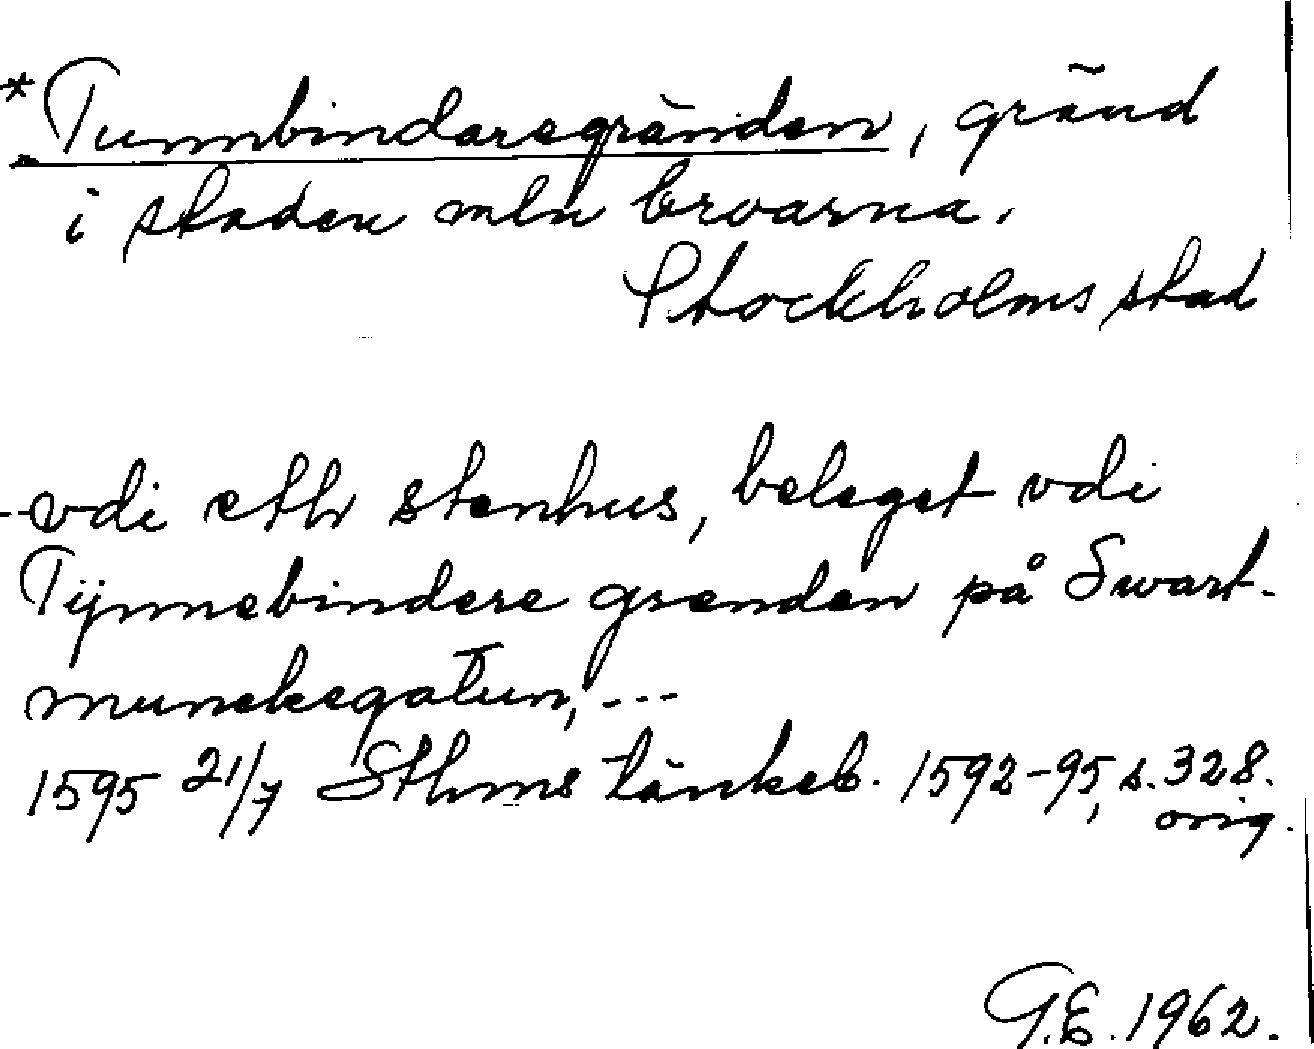 *Tunnbindaregränden, gränd
i staden mln broarna.
Stockholms stad
--vdi eth stenhus, beleget vdi
Tÿnnebindere grenden på Swart-
munckegatun, ---
1595 21/7 Sthms tänkeb. 1592-95, s. 328.
orig.
G.E. 1962.